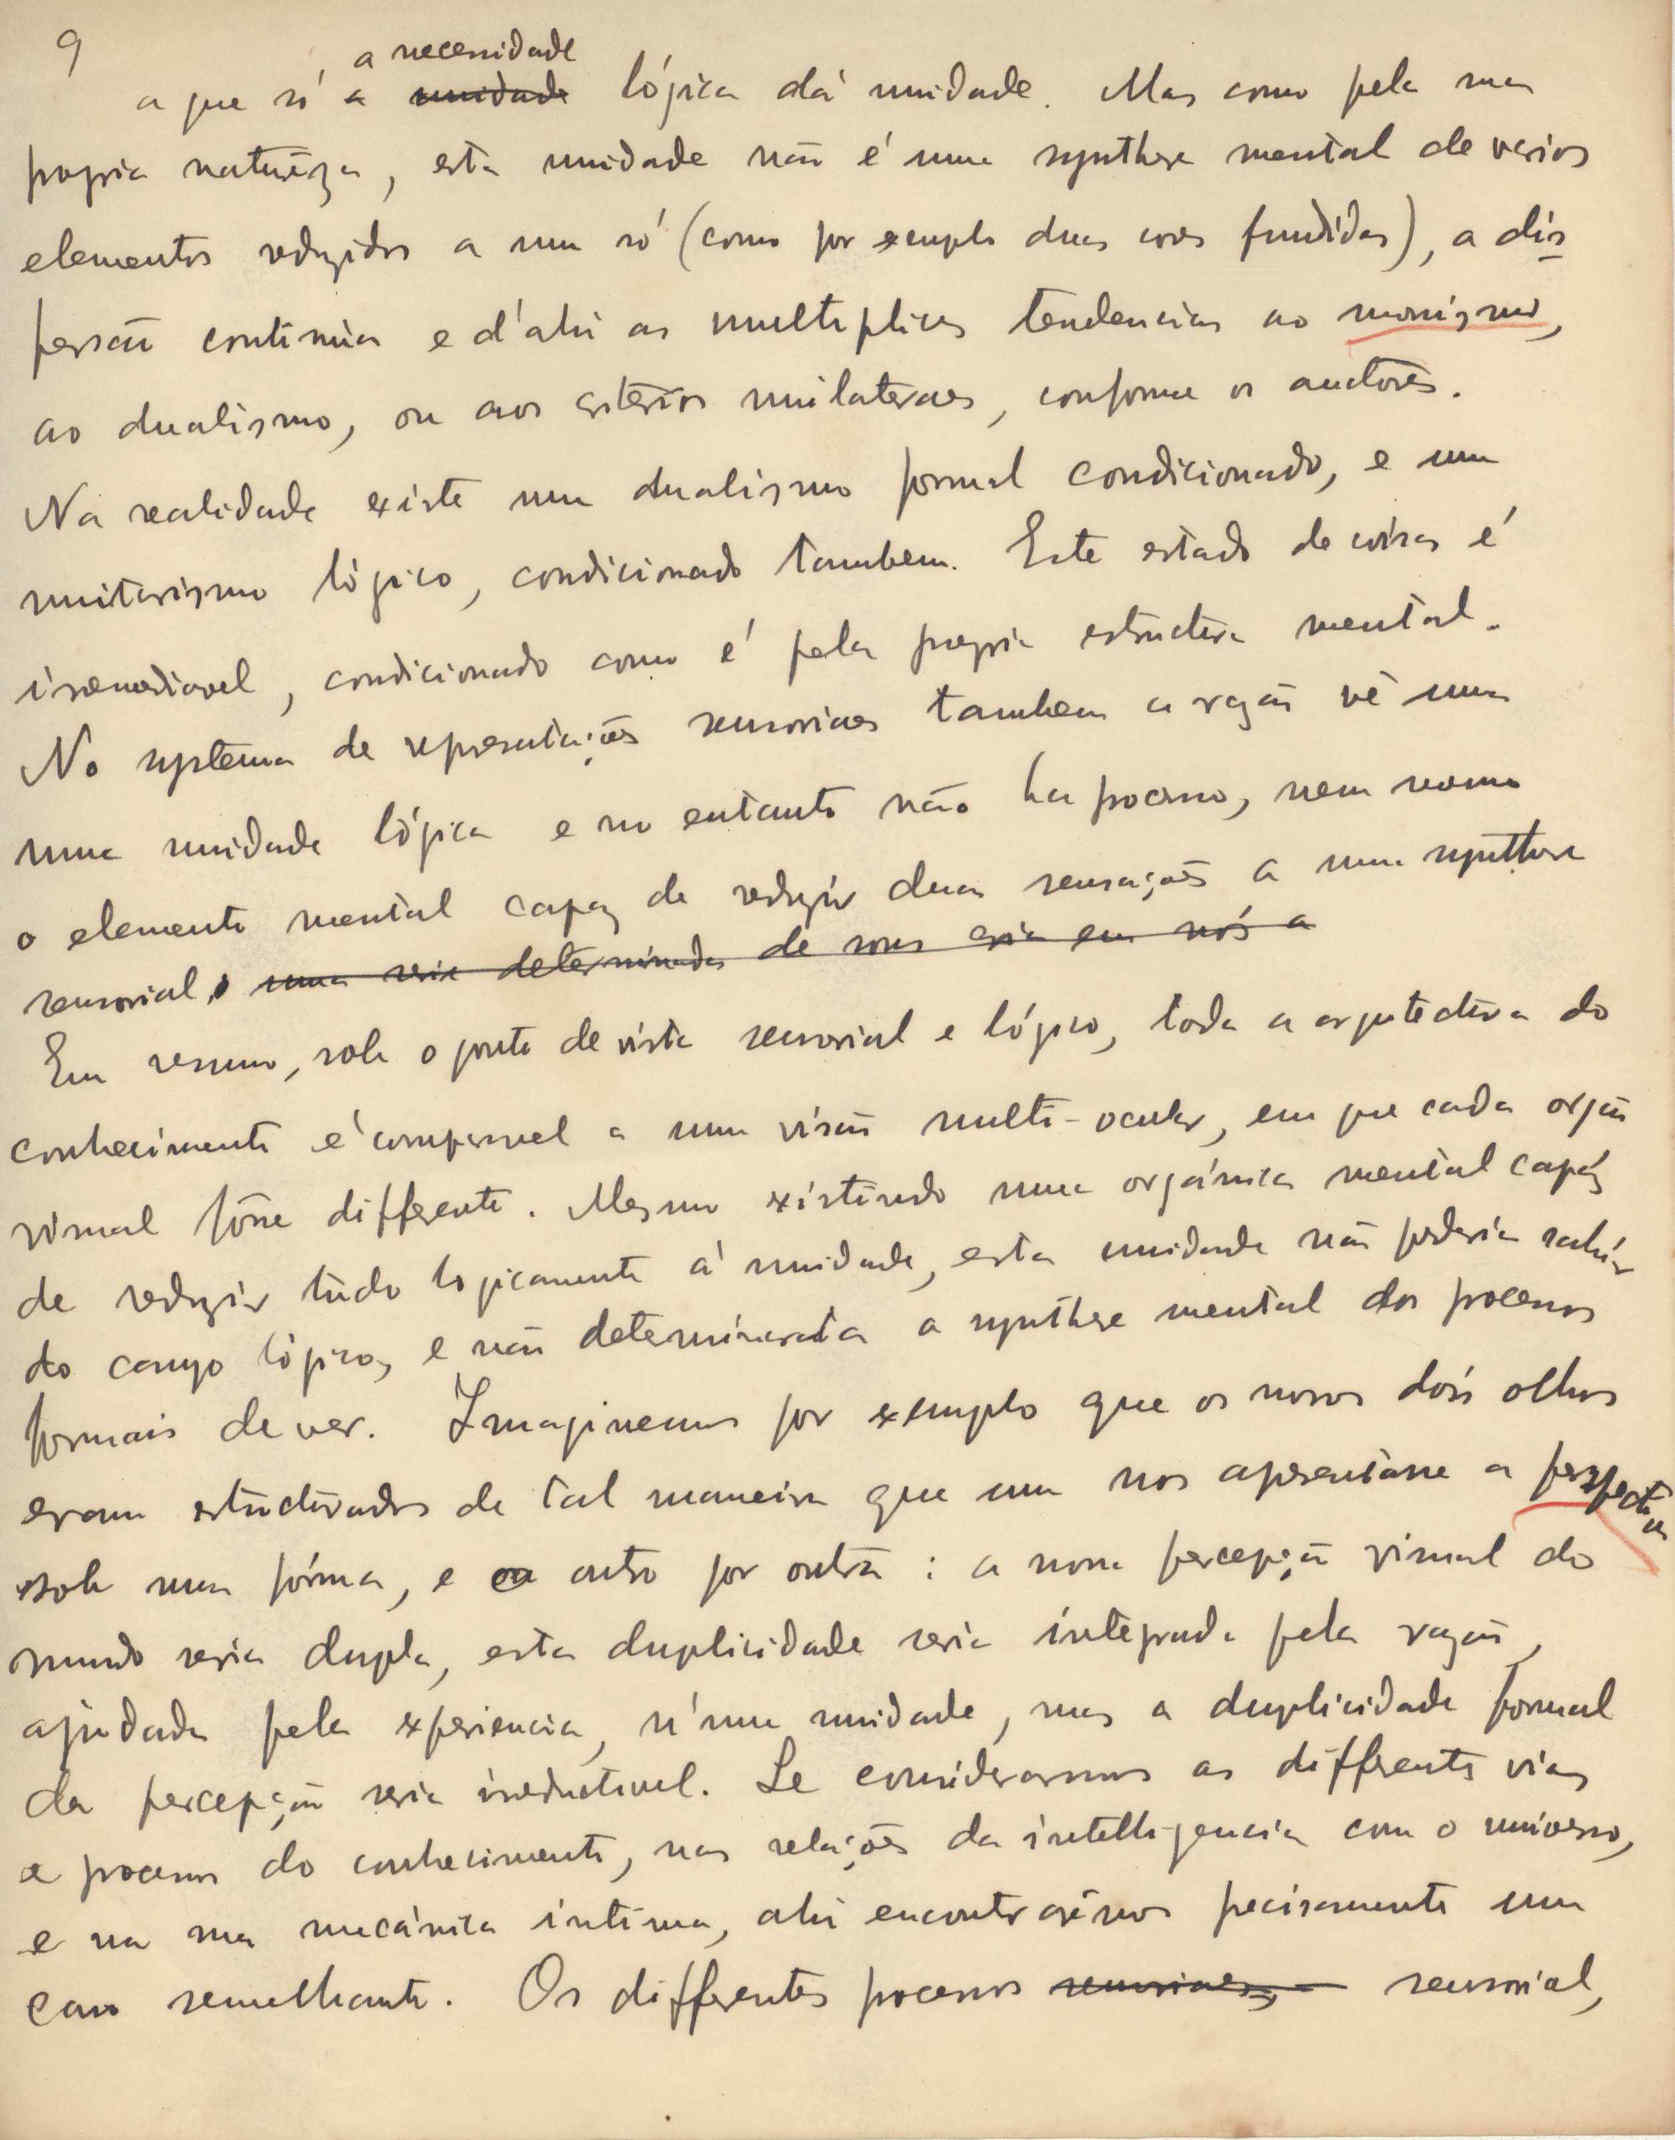 9
a necessidade
a que só a unidade lógica dá unidade. Mas como pela sua
propria natureza, esta unidade não é uma synthese mental de varios
elementos reduzidos a um só (como por exemplo duas cores fundidas), a dis-
persão continúa e d'ahi as multiplices tendencias ao monismo,
ao dualismo, ou aos criterios unilateraes, conforme os auctores.
Na realidade existe um dualismo formal condicionado, e um
unitarismo lógico, condicionado tambem. Este estado de coisas é
irremediavel, condicionado como é pela propria estructura mental.
No systema de representações sensoriaes tambem a razão vê uma
uma unidade lógica e no entanto não ha processo, nem mesmo
o elemento mental capaz de reduzir duas sensações a uma synthese
sensorial, uma serie determinada de sons cria em nós a
Em resumo, sob o ponto de vista sensorial e lógico, toda a arquitectura do
conhecimento é comparavel a uma visão multi-ocular, em que cada orgão
visual fôsse differente. Mesmo existindo uma orgánica mental capáz
de reduzir tudo logicamente á unidade, esta unidade não poderia sahir
do campo lógico, e não determinaria a synthese mental dos processos
formais de ver. Imaginemos por exemplo que os nossos dois olhos
eram estructurados de tal maneira que um nos apresentasse a perspectiva
sob uma fórma, e o outro por outra: a nossa percepção visual do
mundo seria dupla, esta duplicidade seria integrada pela razão,
ajudada pela experiencia, n'uma unidade, mas a duplicidade formal
da percepção seria irreductivel. Se considerarmos as differentes vias
e processos do conhecimento, nas relações da intelligencia com o universo,
e na sua mecánica intima, ahi encontrarêmos precisamente um
caso semelhante. Os differentes processos sensoriaes, sensorial,